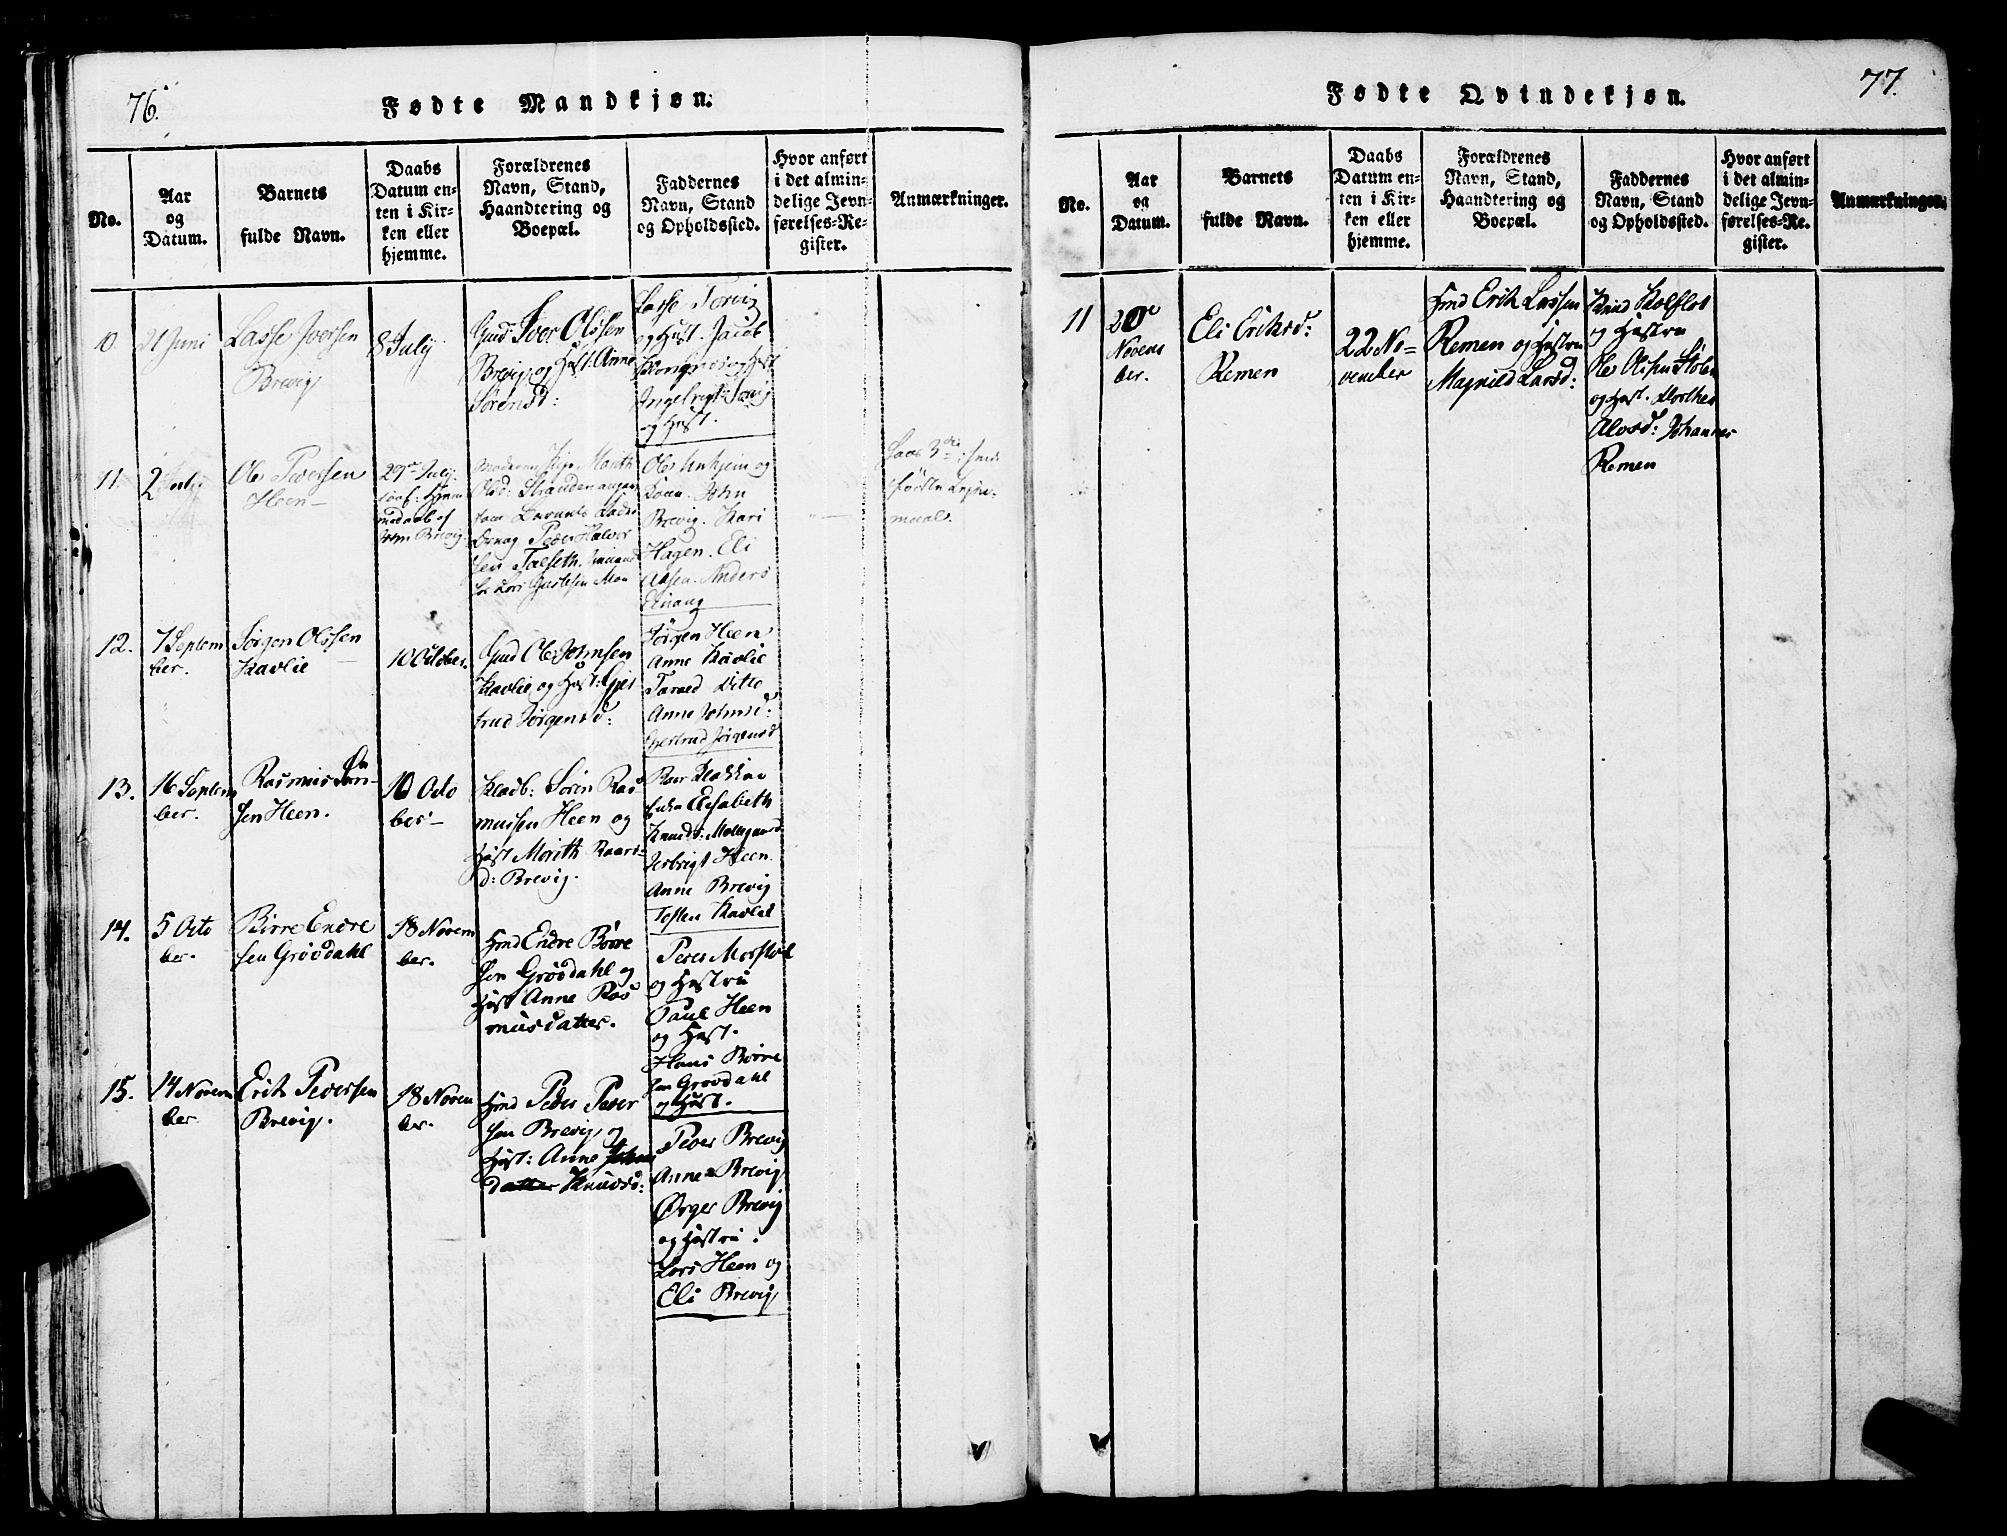 76.
Fødte Mandkjøn.
No.
Aar
og
Datum.
Barnets
fulde Navn.
Daabs
Datum en-
ten i Kir-
ken eller
hjemme.
Forældrenes
Navn, Stand,
Haandtering og
Boepæl.
Faddernes
Navn, Stand
og Opholdssted.
Hvor anført
i det almin-
delige Jevn-
førelses-Re-
gister.
Anmærkninger.
10.
21 Juni
Lasse Iversen
Brevig
8 Julij
Gmd: Iver Olssen
Brevig og Hust: Anne
Sørensd:
Lasse Torvig
og Hust. Jacob
og Hust
Ingebrigt Torvig
og Hust.
11.
2 Julij
Ole Pedersen
Heen
29de Julij
af
John Brevig
Marith
Olsd: Stranden
Peder Halvor
sen Talseth.
Ole Unhjem og
Kone. John
Brevig. Kari
Hagen. Eli
Aasen. Anders
første Leyer-
maal.
12.
7 Septem
ber.
Jørgen Olssen
Kavlie
10 Octobr.
Gmd Ole Johnsen
Kavlie og Hust: Gjer
trud Jørgensd:
Jørgen Heen
Anne Kavlie
Tarald Ditto
Anne Johnsd:
Gjertrud Jørgensd
13.
16 Septem
ber.
Rasmus Søren-
sen Heen.
10 Octo
ber
Søren Ras
mussen Heen og
Hust Marith Roars-
d: Brevig.
Roar
Elisabeth
Knudsd:
Ingebrigt Heen.
Anne Brevig
Kavlie
14.
5 Octo
ber.
Børre Endre
sen Grøvdahl
18 Novem
ber.
Hmd Endre Børre
sen Grøvdahl og
Hust Anne Ras
musdatter.
Peder Morstøl
og Hustru
Paul Heen
og Hust.
Hans Børre
sen Grøvdahl
og Hust.
15.
14 Novem
ber
Erik Pedersen
Brevig.
18 Novem
ber.
Hmd Peder Peder
sen Brevig og
Hust: Anne
datter Knudsd:
Peder Brevig
Anne Brevig
Ørger Brevig
og Hustru.
Lars Heen og
Eli Brevig
77.
Fødte Qvindekjøn.
No.
Aar
og
Datum.
Barnets
fulde Navn.
Daabs
Datum en-
ten i Kir-
ken eller
hjemme.
Forældrenes
Navn, Stand,
Haandtering og
Boepæl.
Faddernes
Navn, Stand
og Opholdssted.
Hvor anført
i det almin-
delige Jevn-
førelses-Re-
gister.
Anmærkninger.
11
20de
Novem
ber.
Eli Eriksd:
Remen
22 No-
vember
Hmd Erik Lassen
Remen og Hustru
Magnild Larsd:
Knud Kolflot
og Hustru
Ole Olsen Stolen
og Hust. Dorthe
Alvsd: Johannes
Remen